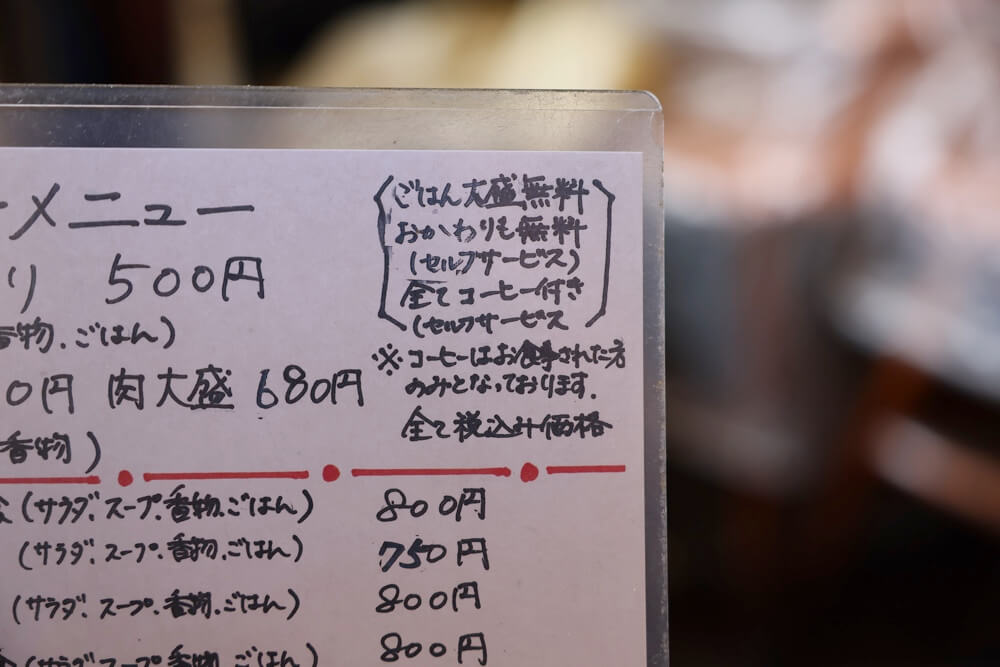 メニュー
り 500円
香物、ごはん)
0円 肉大盛 680円
香物)
(ごはん大盛無料
おかわりも無料
(セルフサービス)
全てコーヒー付き
(セルフサービス)
※コーヒーはお食事された方
のみとなっております。
全て税込み価格
(サラダ、スープ、香物、ごはん) 800円
(サラダ、スープ、香物、ごはん) 750円
(サラダ、スープ、香物、ごはん) 800円
(サラダ、スープ、香物、ごはん) 800円